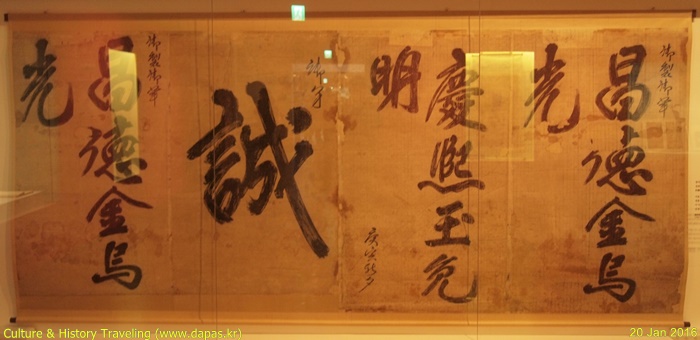 御製御筆
昌德金烏
光
慶熙玉兔
明
庚寅除夕
誠
御製御筆
昌德金烏
光
Culture & History Traveling (www.dapas.kr)
20 Jan 2016